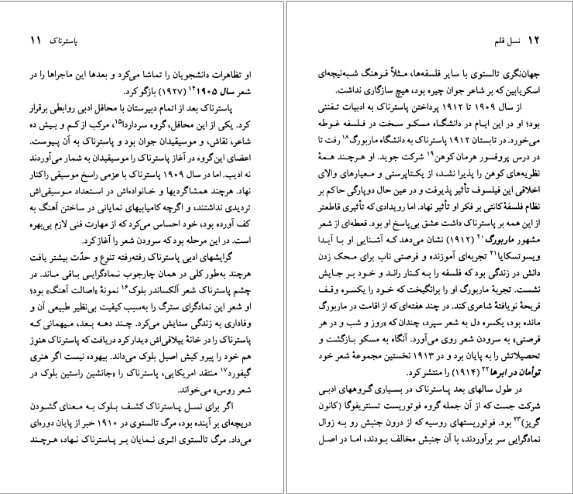 پاسترناک ۱۱
او تظاهرات دانشجویان را تماشا می‌کرد و بعدها این ماجراها را در
شعر سال ۱۹۰۵ ۱۴ (۱۹۲۷) بازگو کرد.
پاسترناک بعد از اتمام دبیرستان با محافل ادبی روابطی برقرار
کرد. یکی از این محافل، گروه سرداردا۱۵، مرکب از کم و بیش ده
شاعر، نقاش، و موسیقیدان جوان بود و پاسترناک به آن پیوست.
اعضای این گروه در آغاز پاسترناک را موسیقیدان به شمار می‌آوردند
نه ادیب. اما در سال ۱۹۰۹ پاسترناک با عزمی راسخ موسیقی راکنار
نهاد. هرچند همشاگردیها و خانواده‌اش در استعداد موسیقی‌اش
تردیدی نداشتند، و اگرچه کامیابیهای نمایانی در ساختن آهنگ به
کف آورده بود، خود احساس می‌کرد که از مهارت فنی لازم بی‌بهره
است. در این مرحله بود که سرودن شعر را آغاز کرد.
گرایشهای ادبی پاسترناک رفته‌رفته تنوع و حدّت بیشتر یافت
هرچند به‌طور کلی در همان چارچوب نمادگرایی باقی ماند. در
چشم پاسترناک شعر آلکساندر بلوک۱۶ نمونهٔ «اصالت آهنگ» بود؛
او شعر این نمادگرای سترگ را به‌سبب کیفیت بی‌نظیر طبیعی آن و
وفاداری به زندگی ستایش می‌کرد. چند دهه بعد، میهمانی که
پاسترناک را در خانهٔ ییلاقی‌اش دیدار کرد دریافت که پاسترناک هنوز
هم خود را پیرو کیش اصیل بلوک می‌داند. بیهوده نیست اگر هنری
گیفورد۱۷ منتقد امریکایی، پاسترناک را «جانشین راستین بلوک در
شعر روس» می‌خواند.
اگر برای نسل پاسترناک کشف بلوک به معنای گشودن
دریچه‌ای بر آینده بود، مرگ تالستوی در ۱۹۱۰ خبر از پایان دوره‌ای
می‌داد. مرگ تالستوی اثری نمایان بر پاسترناک نهاد، هرچند
۱۲ نسل قلم
جهان‌نگری تالستوی با سایر فلسفه‌ها، مثلاً فرهنگ شبه‌نیچه‌ای
اسکریابین که بر شاعر جوان چیره بود، هیچ سازگاری نداشت.
از سال ۱۹۰۹ تا ۱۹۱۲ پرداختن پاسترناک به ادبیات تفننی
بود؛ او در این ایام در دانشگاه مسکو سخت در فلسفه غوطه
می‌خورد. در تابستان ۱۹۱۲ پاسترناک به دانشگاه ماربورگ۱۸ رفت تا
در درس پروفسور هرمان کوهن۱۹ شرکت جوید. او هرچند همهٔ
نظریه‌های کوهن را پذیرا نشد، از یکتاپرستی و معیارهای والای
اخلاقی این فیلسوف تأثیر پذیرفت و در عین حال دوپارگی حاکم بر
نظام فلسفهٔ کانتی بر فکر او تأثیر نهاد. اما رویدادی که تأثیری قاطعتر
از این همه بر پاسترناک داشت عشق بی‌پاسخ او بود. قطعه‌ای از شعر
مشهور ماربورگ۲۰ (۱۹۱۲) نشان می‌دهد که آشنایی او با آیدا
ویسوتسکایا۲۱ تجربه‌ای آموزنده و فرصتی ناب برای محک زدن
دانش در زندگی بود که فلسفه را به کنار راند و خود بر جایش
نشست. تجربهٔ ماربورگ او را برانگیخت که خود را یکسره وقف
قریحهٔ نویافتهٔ شاعری کند. در چند هفته‌ای که از اقامت در ماربورگ
مانده بود، یکسره دل به شعر سپرد، چندان که «روز و شب و در هر
فرصتی» به سرودن شعر روی می‌آورد. آنگاه به مسکو بازگشت و
تحصیلاتش را به پایان برد و در ۱۹۱۳ نخستین مجموعهٔ شعر خود
توأمان در ابرها۲۲ (۱۹۱۴) را منتشر کرد.
در طول سالهای بعد پاسترناک در بسیاری گروههای ادبی
شرکت جست که از آن جمله گروه فوتوریست تسنتریفوگا (کانون
گریز)۲۳ بود. فوتوریستهای روسیه که از درون جنبش رو به زوال
نمادگرایی سر برآوردند، با آن جنبش مخالف بودند، اما در اصل